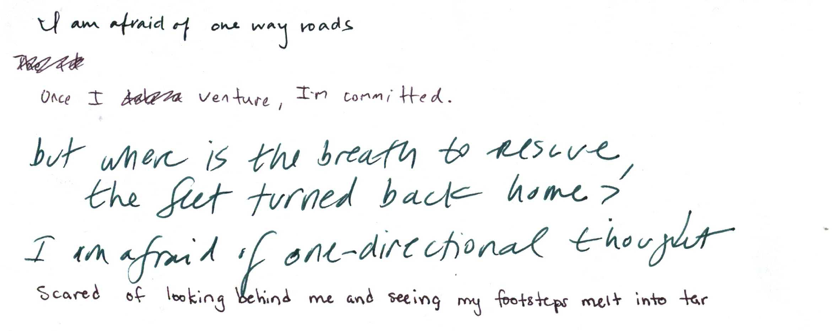 I am afraid of one way roads
Once I venture, I'm committed.
but where is the breath to rescue,
the feet turned back home?
I am afraid of one-directional thought
Scared of looking behind me and seeing my footsteps melt into tar